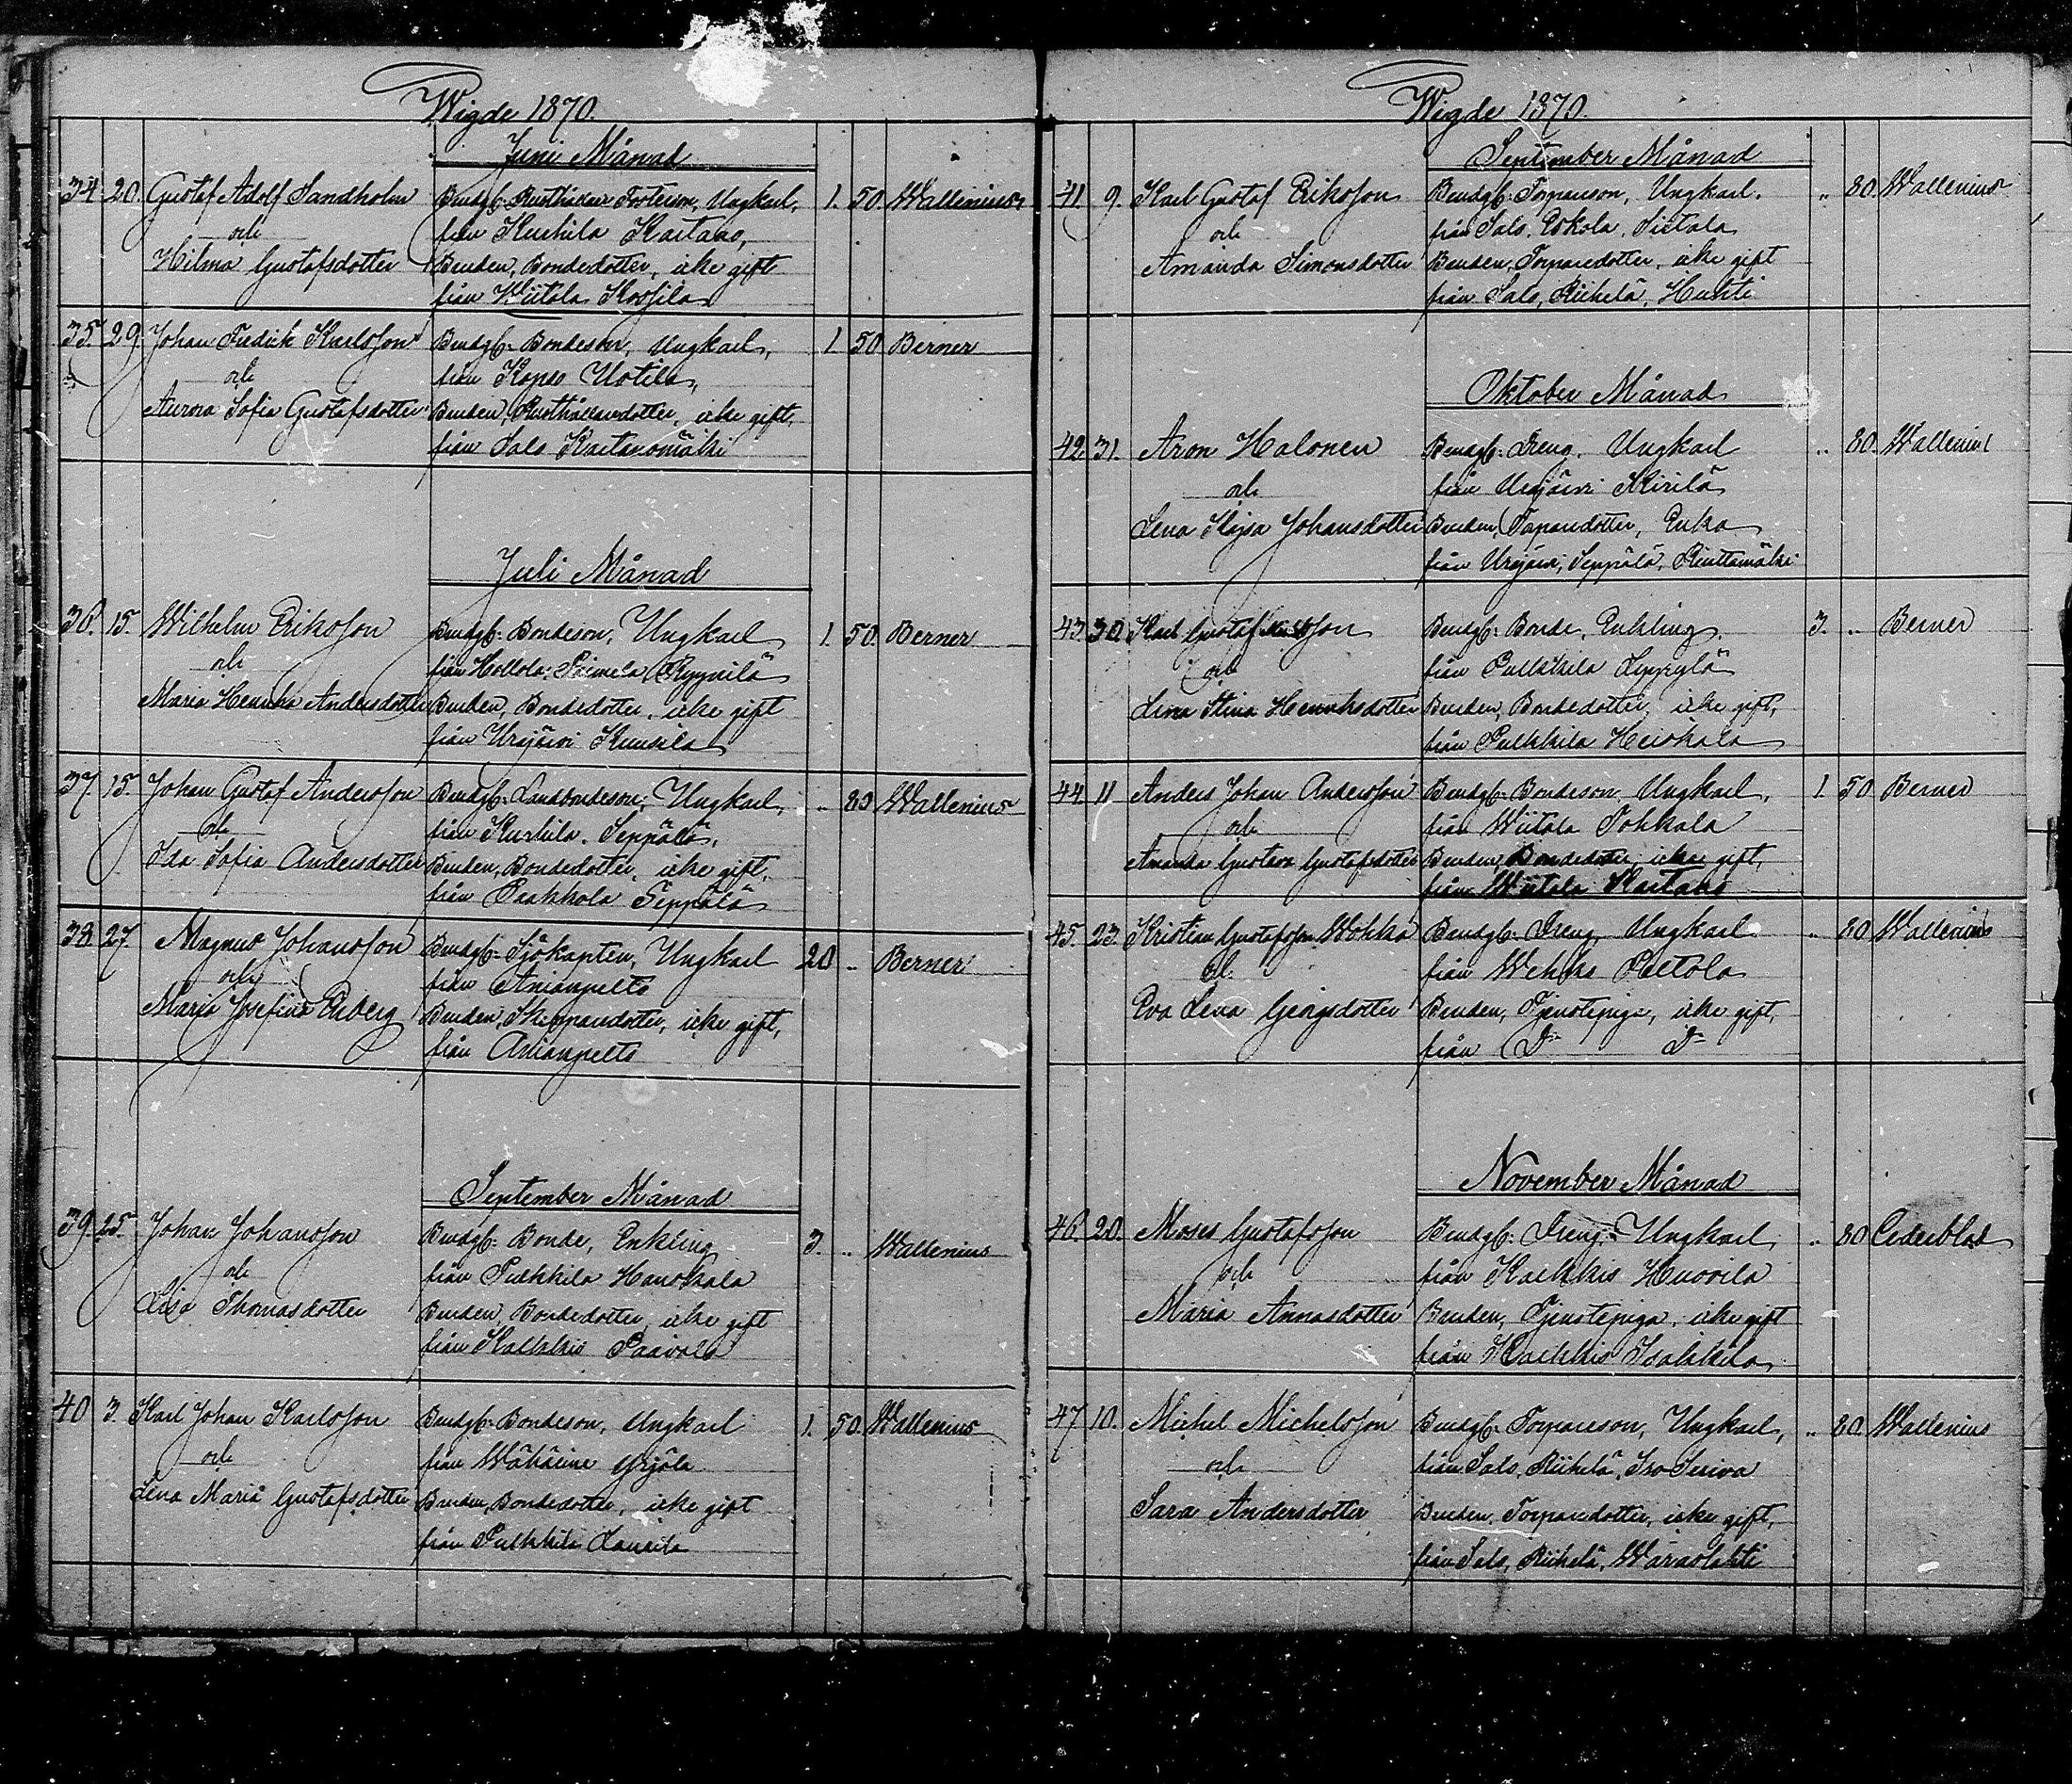 Wigde 1870.
Juni Månad
34 20. Gustaf Adolf Sandholm Brudg: Rusthållare Fosterson, Ungkarl, 1. 50. Wallenius
och från Kurhila Kartano,
Hilma Gustafsdotter Bruden, Bondedotter, icke gift
från Wiitala Kossila
35. 29. Johan Fredrik Karlsson Brudg: Bondeson, Ungkarl, 1. 50 Berner
och från Kopso Uotila,
Aurora Sofia Gustafsdotter Bruden, Rusthållaredotter, icke gift,
från Salo Kartanomäki
Juli Månad
36. 15. Wilhelm Eriksson Brudg: Bondeson, Ungkarl 1. 50. Berner
och från Hollola, Paimela Kyynilä
Maria Henrika Andersdotter Bruden, Bondedotter, icke gift
från Urajärvi Kuusela
37. 15. Johan Gustaf Andersson Brudg: Landbondeson, Ungkarl, .. 80 Wallenius
och från Kurhila, Seppälä,
Ida Sofia Andersdotter Bruden, Bondedotter, icke gift,
från Paakkola Seppälä
38. 27. Magnus Johansson Brudg: Sjökapten, Ungkarl 20 .. Berner
och från Anianpelto
Maria Josefina Enberg Bruden, Skepparedotter, icke gift,
från Anianpelto
September Månad
39. 25. Johan Johansson Brudg: Bonde, Enkling 3. .. Wallenius
och från Pulkkila Hauskala
Lisa Thomasdotter Bruden, Bondedotter, icke gift
från Kalkkis Paavola
40 3. Karl Johan Karlsson Brudg: Bondeson, Ungkarl 1. 50. Wallenius
och från Wähäime Yrjölä
Lena Maria Gustafsdotter Bruden, Bondedotter, icke gift
från Pulkkila Laurila
Wigde 1870.
September Månad
41. 9. Karl Gustaf Eriksson Brudg: Torpareson, Ungkarl. .. 80. Wallenius
och från Salo, Eskola, Sietola
Amanda Simonsdotter Bruden, Torparedotter, icke gift
från Salo, Riihelä, Huhti
Oktober Månad
42. 31. Aron Halonen Brudg: Dreng, Ungkarl .. 80. Wallenius
och från Urajärvi Kirilä
Lena Kajsa Johansdotter Bruden, Torparedotter, Enka
från Urajärvi, Seppälä, Rinttamäki
43 30. Karl Gustaf Karlsson Brudg: Bonde, Enkling. 3. .. Berner
och från Pulkkila Seppylä
Lena Stina Henriksdotter Bruden, Bondedotter, icke gift,
från Pulkkila Heiskala
44. 11 Anders Johan Andersson Brudg: Bondeson, Ungkarl, 1. 50 Berner
och från Wiitala Tokkala
Amanda Gustava Gustafsdotter Bruden, Bondedotter, icke gift,
från Wiitala Kartano
45. 23. Kristian Gustafsson Wohka Brudg: Dreng, Ungkarl .. 80 Wallenius
och från Wehka Peltola
Eva Lena Georgsdotter Bruden, Tjenstepiga, icke gift,
från Do Do
November Månad
46. 20. Moses Gustafsson Brudg: Dreng, Ungkarl .. 80 Cederblad
och från Kalkkis Huovila
Maria Annasdotter Bruden, Tjenstepiga, icke gift
från Kalkkis Isakkila
47 10. Michel Michelsson Brudg: Torpareson, Ungkarl, .. 80. Wallenius
och från Salo, Riihelä, Iso Seriva
Sara Andersdotter Bruden, Torparedotter, icke gift,
från Salo, Riihelä, Waraslahti